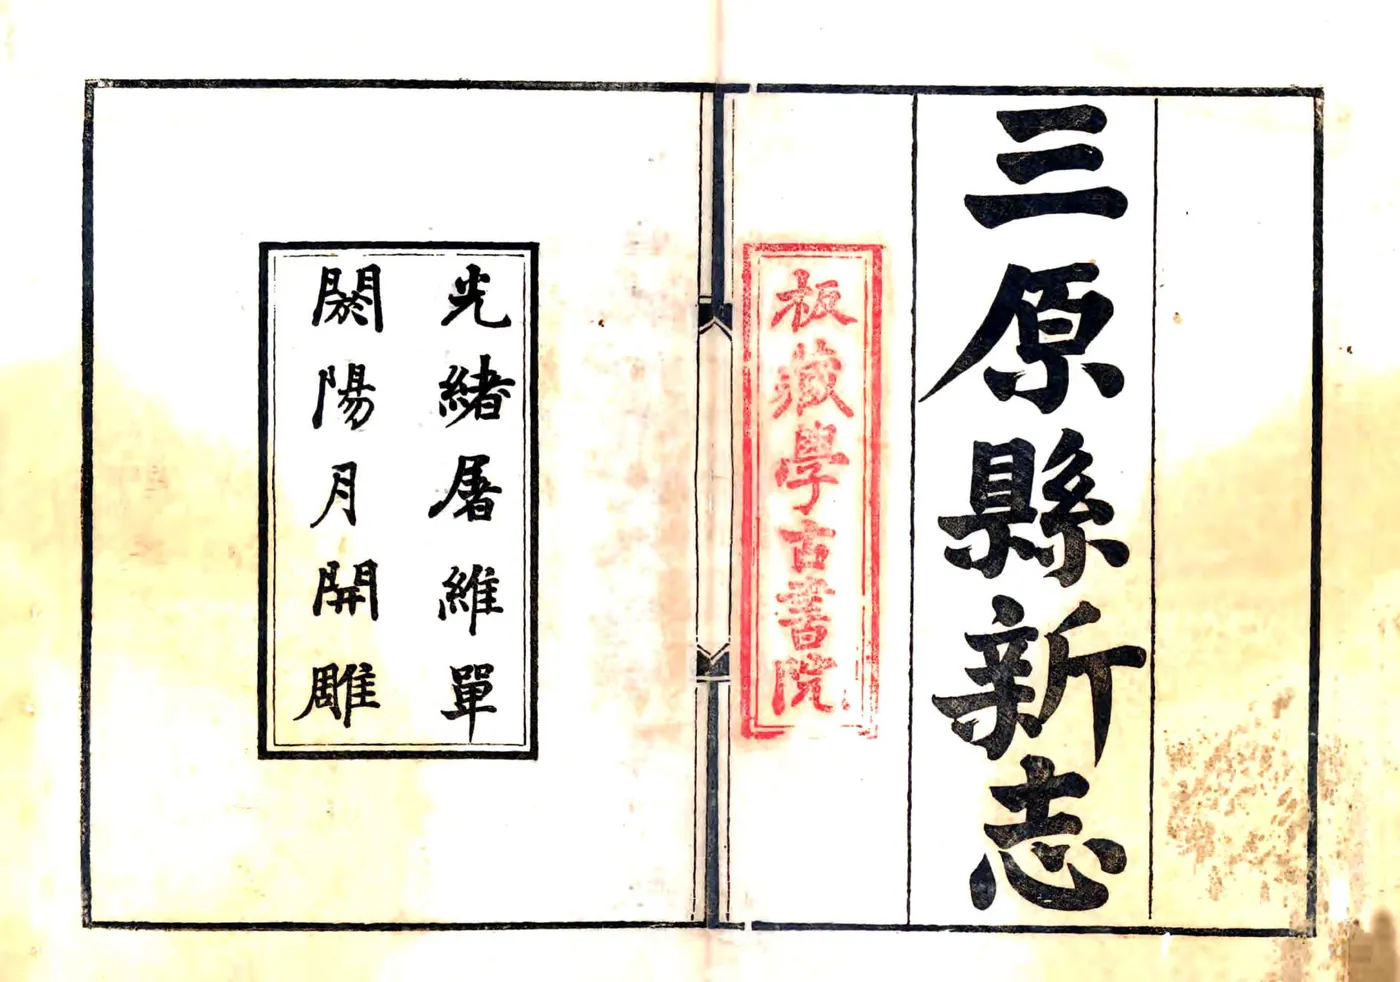 三原縣新志
板藏學古書院
光緒屠維單
閼陽月開雕